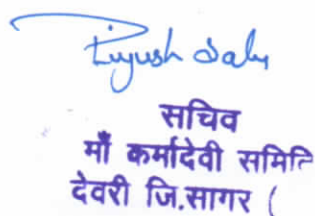 Piyush Sahu
सचिव
माँ कर्मादेवी समिति
देवरी जि.सागर (